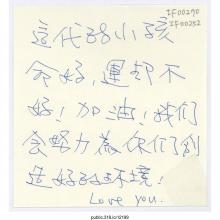 IF00290
IF00252
這代的小孩
命好，運卻不
好！加油！我們
會努力為你們創
造好的環境！
Love you.
public.318.io/12199